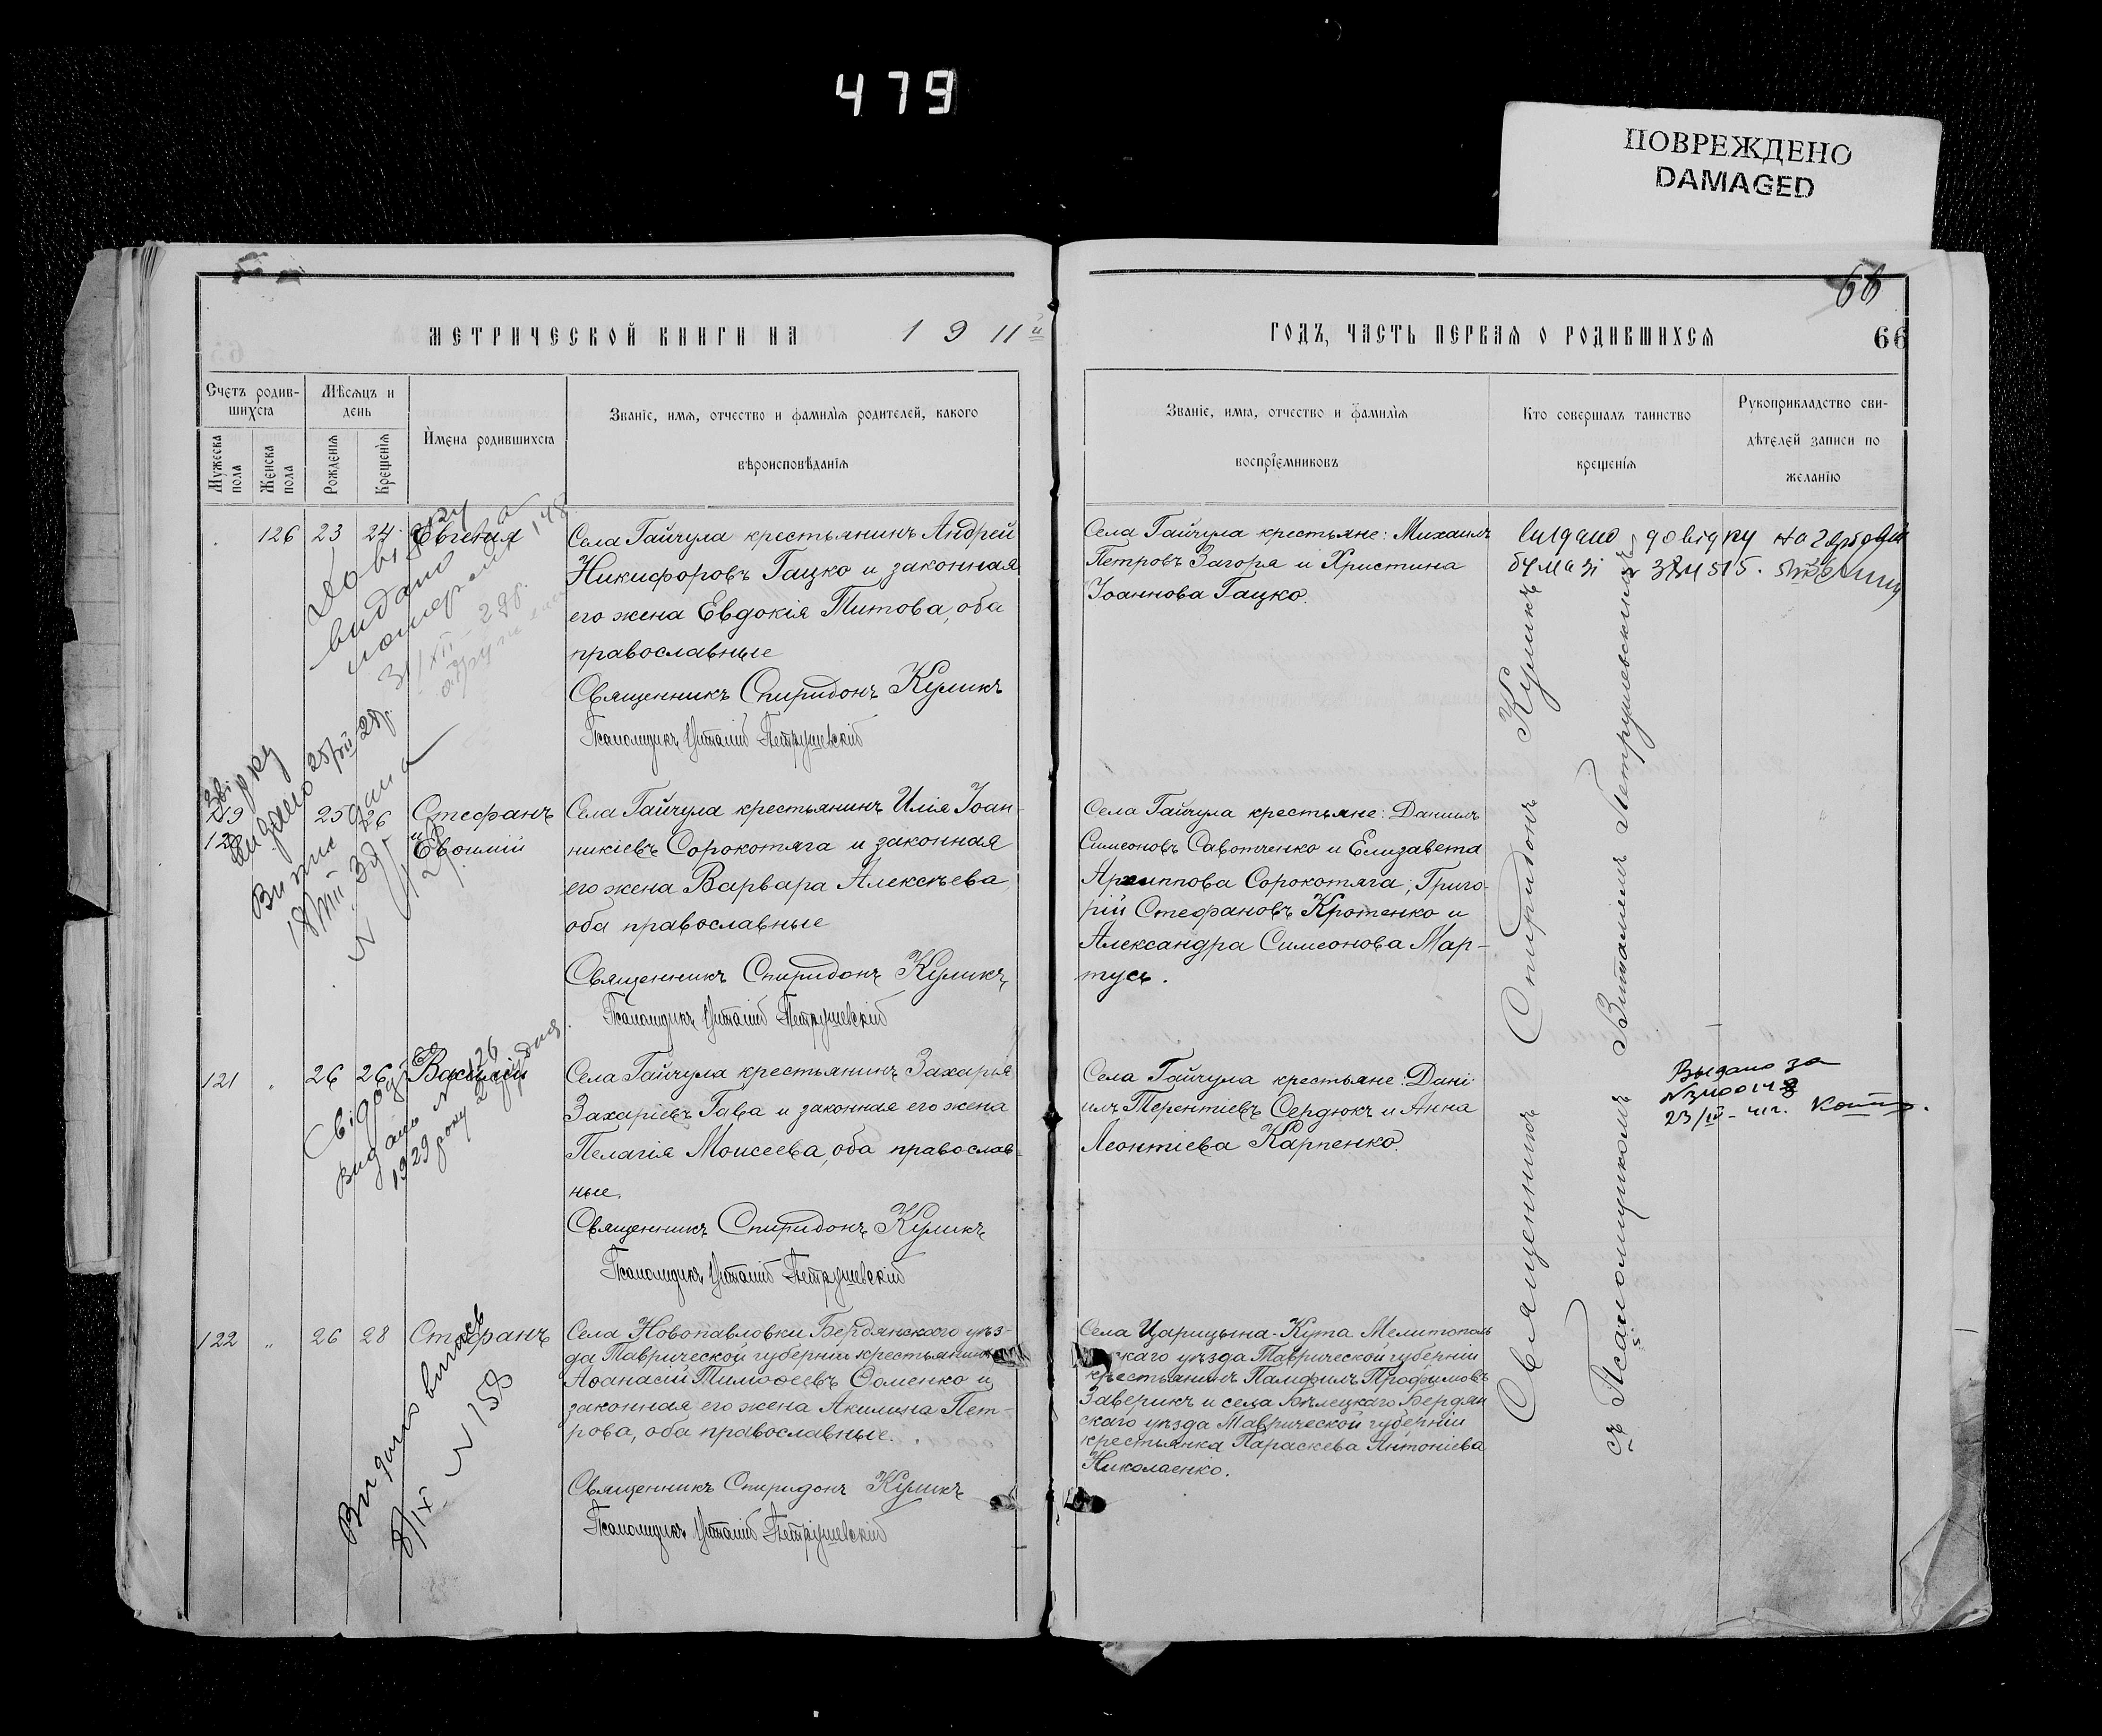 479
ПОВРЕЖДЕНО
DAMAGED
66
МЕТРИЧЕСКОЙ КНИГИ НА 1911й
ГОДЪ, ЧАСТЬ ПЕРВАЯ О РОДИВШИХСЯ
66
Счетъ родив-
шихся
Мужеска
пола
Женска
пола
Мѣсяцъ и
день
Рожденія
Крещенія
Имена родившихся
Званіе, имя, отчество и фамилія родителей, какого
вѣроисповѣданія
Званіе, имя, отчество и фамилія
воспріемниковъ
Кто совершалъ таинство
крещенія
Рукоприкладство сви-
дѣтелей записи по
желанію
126 23 24 Евгенія
Села Гайчула крестьянинъ Андрей
Никифоровъ Гацко и законная
его жена Евдокія Титова, оба
православные
Священникъ Спиридонъ Куликъ
Псаломщикъ Виталій Петрушевскій
Села Гайчула крестьяне: Михаилъ
Петровъ Загоря и Христина
Іоаннова Гацко.
видано довідку на гербовій
бумазі
Довідку
видано
31/XII-28р.
119 25 26 Стефанъ
120 и Евѳимій
Села Гайчула крестьянинъ Илія Іоан-
никіевъ Сорокотяга и законная
его жена Варвара Алексѣева
оба православные
Священникъ Спиридонъ Куликъ
Псаломщикъ Виталій Петрушевскій
Села Гайчула крестьяне: Даніилъ
Симеоновъ Савотченко и Елизавета
Архиппова Сорокотяга; Григо-
рій Стефановъ Кротенко и
Александра Симеонова Мар-
тусь.
121 26 26 Василій
Села Гайчула крестьянинъ Захарія
Захаріевъ Гава и законная его жена
Пелагія Моисеева, оба православ-
ные.
Священникъ Спиридонъ Куликъ
Псаломщикъ Виталій Петрушевскій
Села Гайчула крестьяне: Дані-
илъ Терентіевъ Сердюкъ и Анна
Леонтіева Карпенко.
видано № 126
1929 року
Выдано за
23/IV-41г.
122 " 26 28 Стефанъ
Села Новопавловки Бердянскаго уѣз-
да Таврической губерніи крестьянинъ
Аѳанасій Тимоѳеевъ Ѳоменко и
законная его жена Акилина Пет-
рова, оба православные.
Священникъ Спиридонъ Куликъ
Псаломщикъ Виталій Петрушевскій
Села Царицына-Кута Мелитополь-
скаго уѣзда Таврической губерніи
крестьянинъ Памфилъ Трофимовъ
Заверикъ и села Бѣлецкаго Бердян-
скаго уѣзда Таврической губерніи
крестьянка Параскева Антоніева
Николаенко.
Видано випись
8/IX № 158
Священникъ Спиридонъ Куликъ
съ Псаломщикомъ Виталіемъ Петрушевскимъ